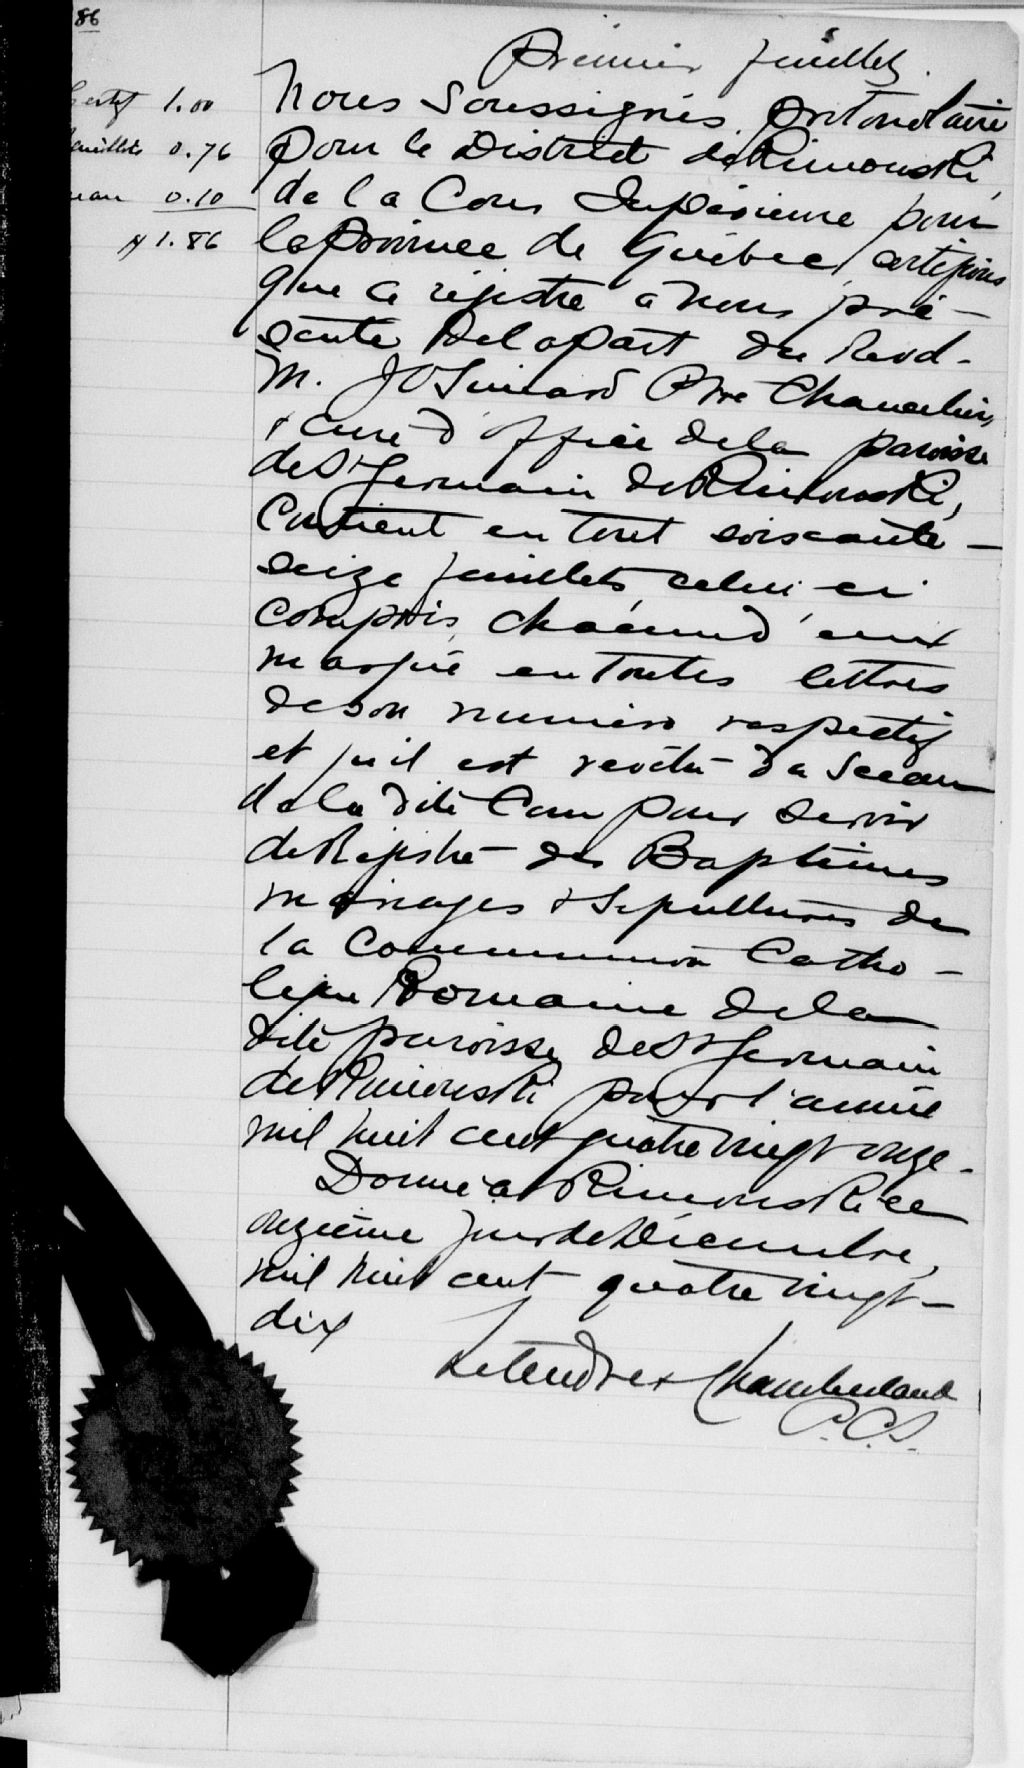 86
premier feuillet.
Certif 1.00
feuillets 0.76
0.10
1.86
Nous Soussignés, protonotaire
pour le District de Rimouski,
de la Cour Supérieure pour
la Province de Québec, certifions
que ce régistre à nous pré-
senté de la part du Revd.
M. J O Simard Ptre Chancelier,
& curé d'office de la paroisse
de St Germain de Rimouski,
Contient en tout soixante-
seize feuillets, celui-ci
compris, chacun d'eux
marqué en toutes lettres
de son numéro respectif
et qu'il est revêtu du Sceau
de la dite Cour pour servir
de Régistre des Baptêmes
mariages & Sépultures de
la Communion Catho-
lique Romaine de la
dite paroisse de St Germain
de Rimouski pour l'année
mil huit cent quatre vingt onze.
Donné à Rimouski ce
onzième jour de Décembre,
mil huit cent quatre vingt-
dix
Letendre & Chamberland
P.C.S.